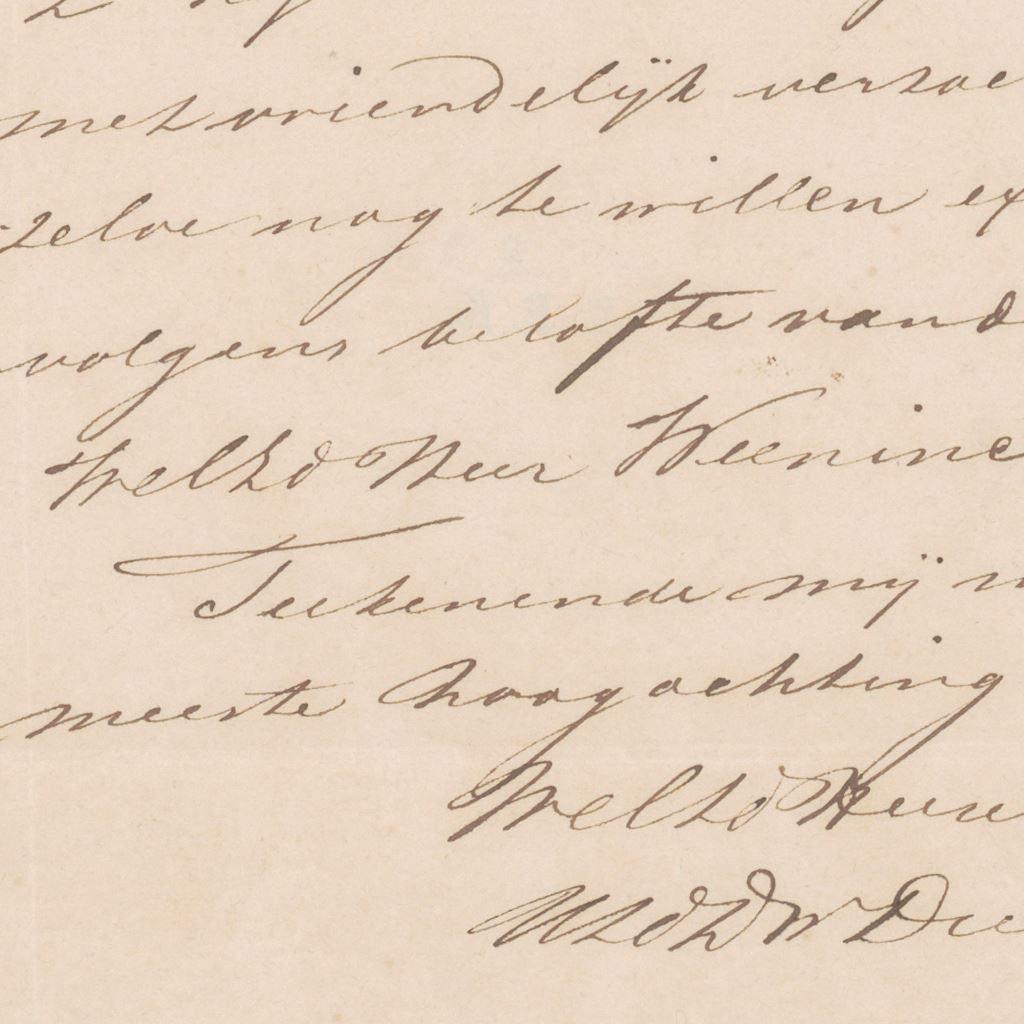 met vriendelijk verzoe
zelve nog te willen ex
volgens belofte vand
WelEd Heer Weenine
Teekenende mij m
meeste hoogachting
WelEd Heere
UEd Dw Die